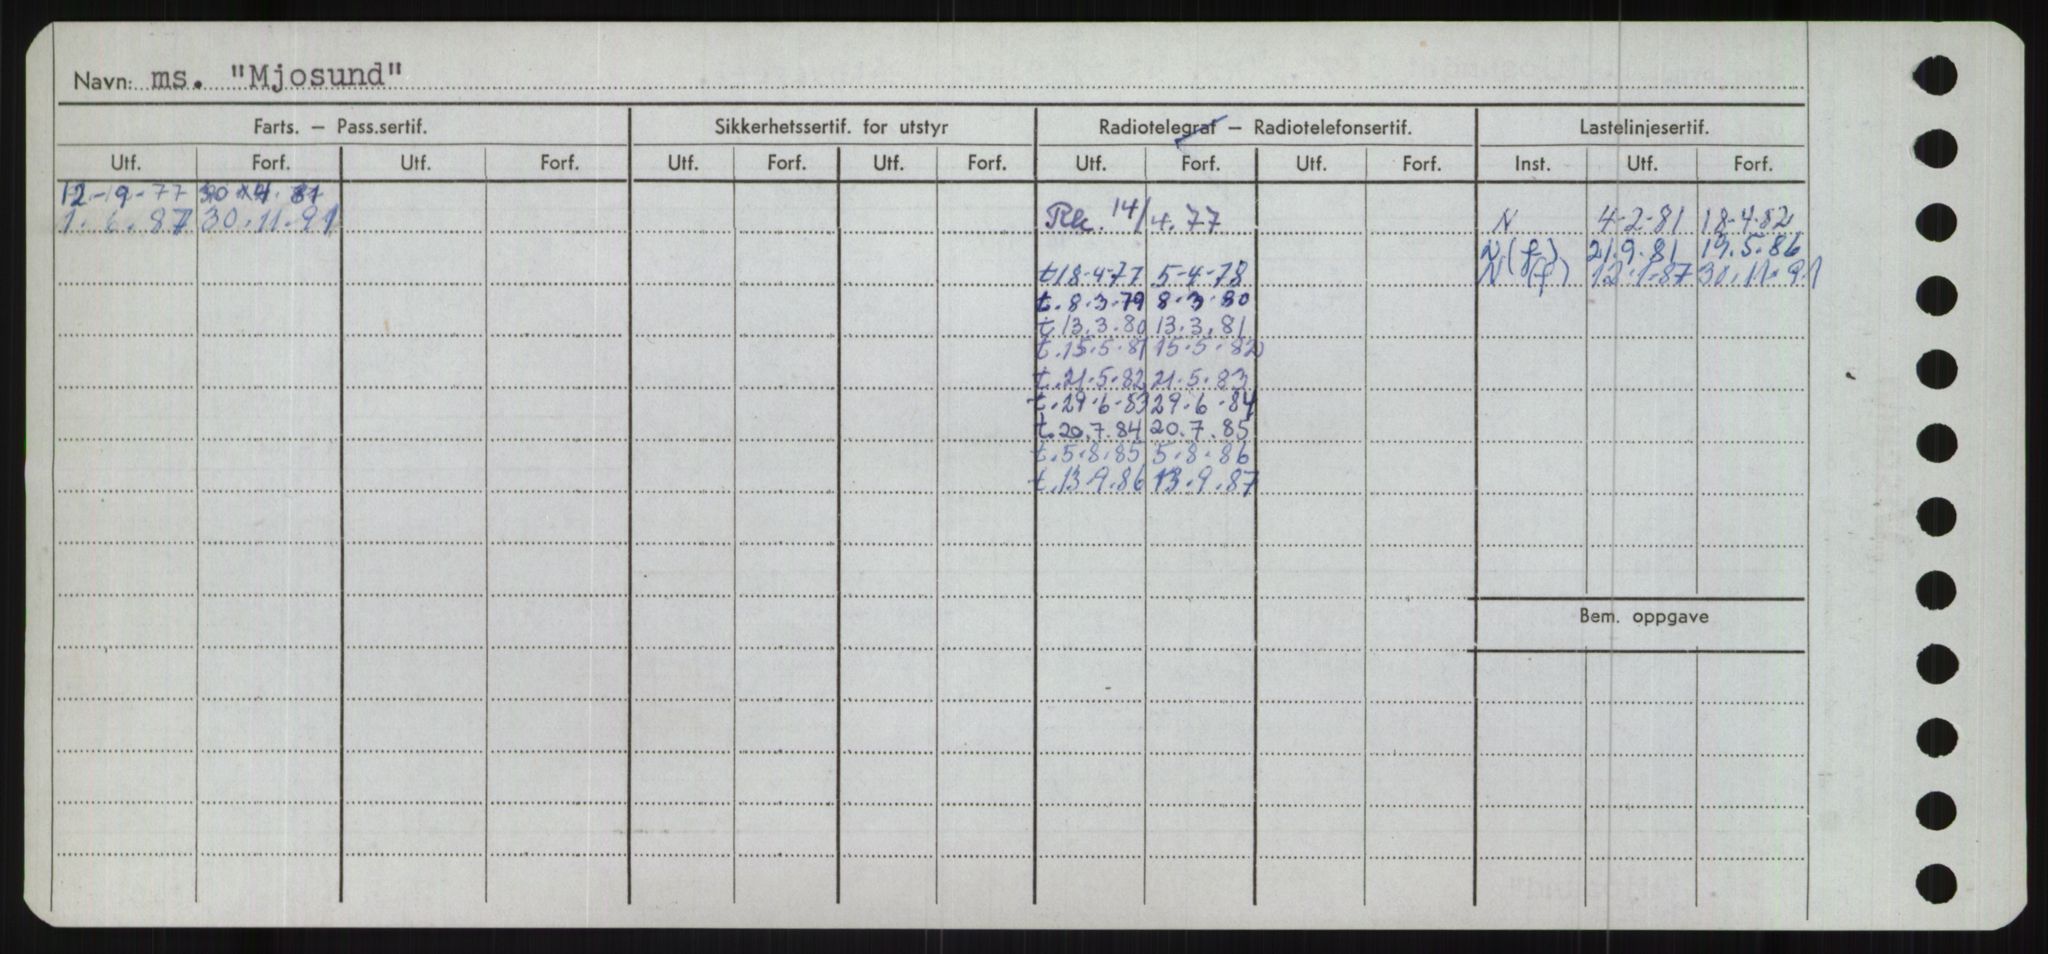 Navn: ms. "Mjosund"
Farts. — Pass.sertif. Sikkerhetssertif. for utstyr Radiotelegraf — Radiotelefonsertif. Lastelinjesertif.
Utf. Forf. Utf. Forf. Utf. Forf. Utf. Forf. Utf. Forf. Utf. Forf. Inst. Utf. Forf.
12-9-77 30 4. 81
1.6.87 30.11.91 Rk. 14/4.77 N 4-2-81 18-4-82
N(f) 21.9.81 19.5.86
t18-4-77 5-4-78 N (f) 12-1-87 30.11.91
t.8.3.79 8.3.80
t.13.3.80 13.3.81
t.15.5.81 15.5.82
t.21.5.82 21.5.83
t.29.6.83 29.6.84
t.20.7.84 20.7.85
t.5.8.85 5.8.86
t.13.9.86 13.9.87
Bem. oppgave